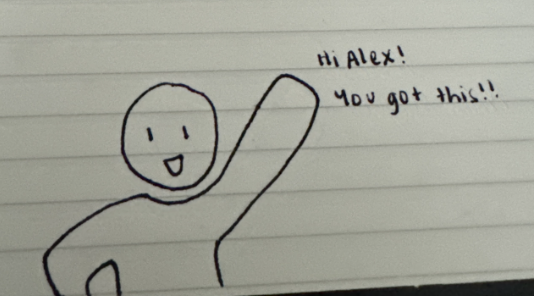 Hi Alex!
You got this!!